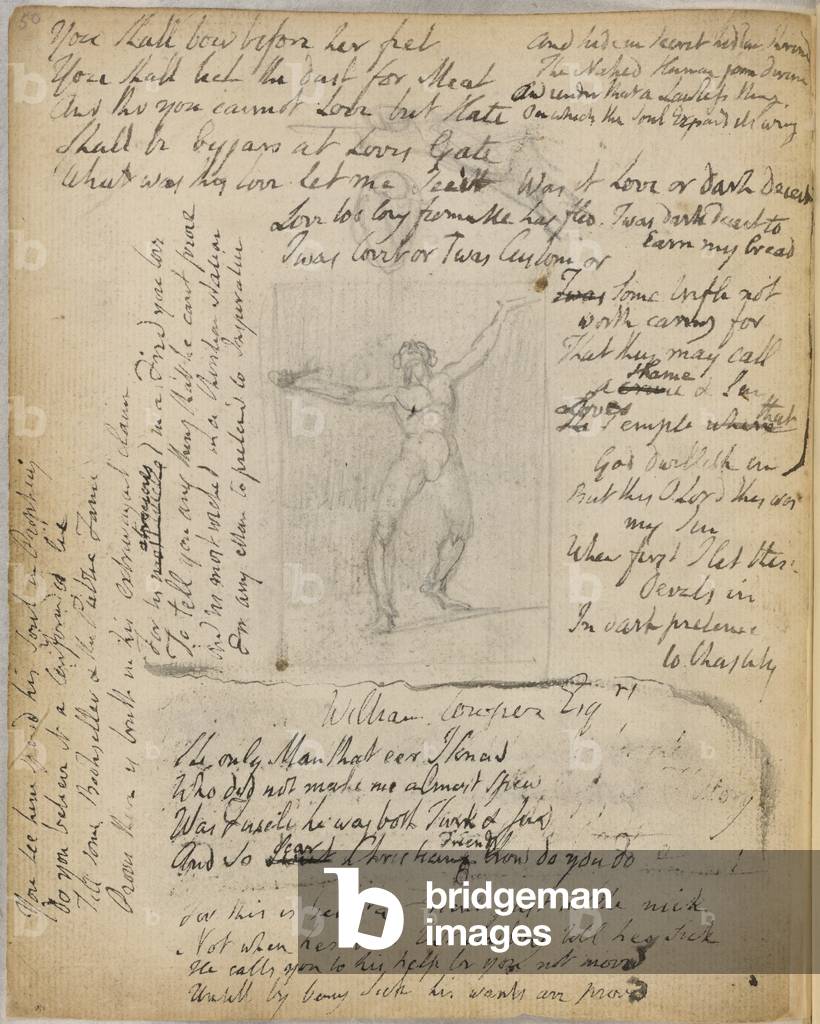 50
You shall bow before her feet
You shall lick the dust for Meat
And tho you cannot Love but Hate
Shall be beggars at Loves Gate
What was thy love let me see it
Was it Love or dark deceit
Love too long from Me has fled.
Twas dark deceit to
Earn my bread
Twas Covet or Twas Custom or
Twas Some trifle not
worth caring for
That they may call
a shame & Sin
Loves Temple where that
God dwelleth in
And hide in secret hidden shrine
The Naked Human form divine
And render that a Lawless thing
On which the Soul Expands its wing
But this O Lord this was
my Sin
When first I let these
Devils in
In dark pretence
to Chastity
For his atrocious in a Friend you love
To tell you any thing that he cant prove
And tis most wicked in a Christian Nation
For any Man to pretend to Inspiration
You see here
his Soul in Prophecy
Do you believe it a confounded lie
Till some Bookseller & the Public Fame
Proves there is truth in his extravagant claim
William Cowper Esqre
The only Man that eer I knew
Who did not make me almost spew
Was Fuseli he was both Turk & Jew
And so dear Christian Friends how do you do
For this is
the nick
Not when hes
till hes sick
He calls you to his help be you not movd
Untill by being Sick his wants are provd
b
bridgeman
images